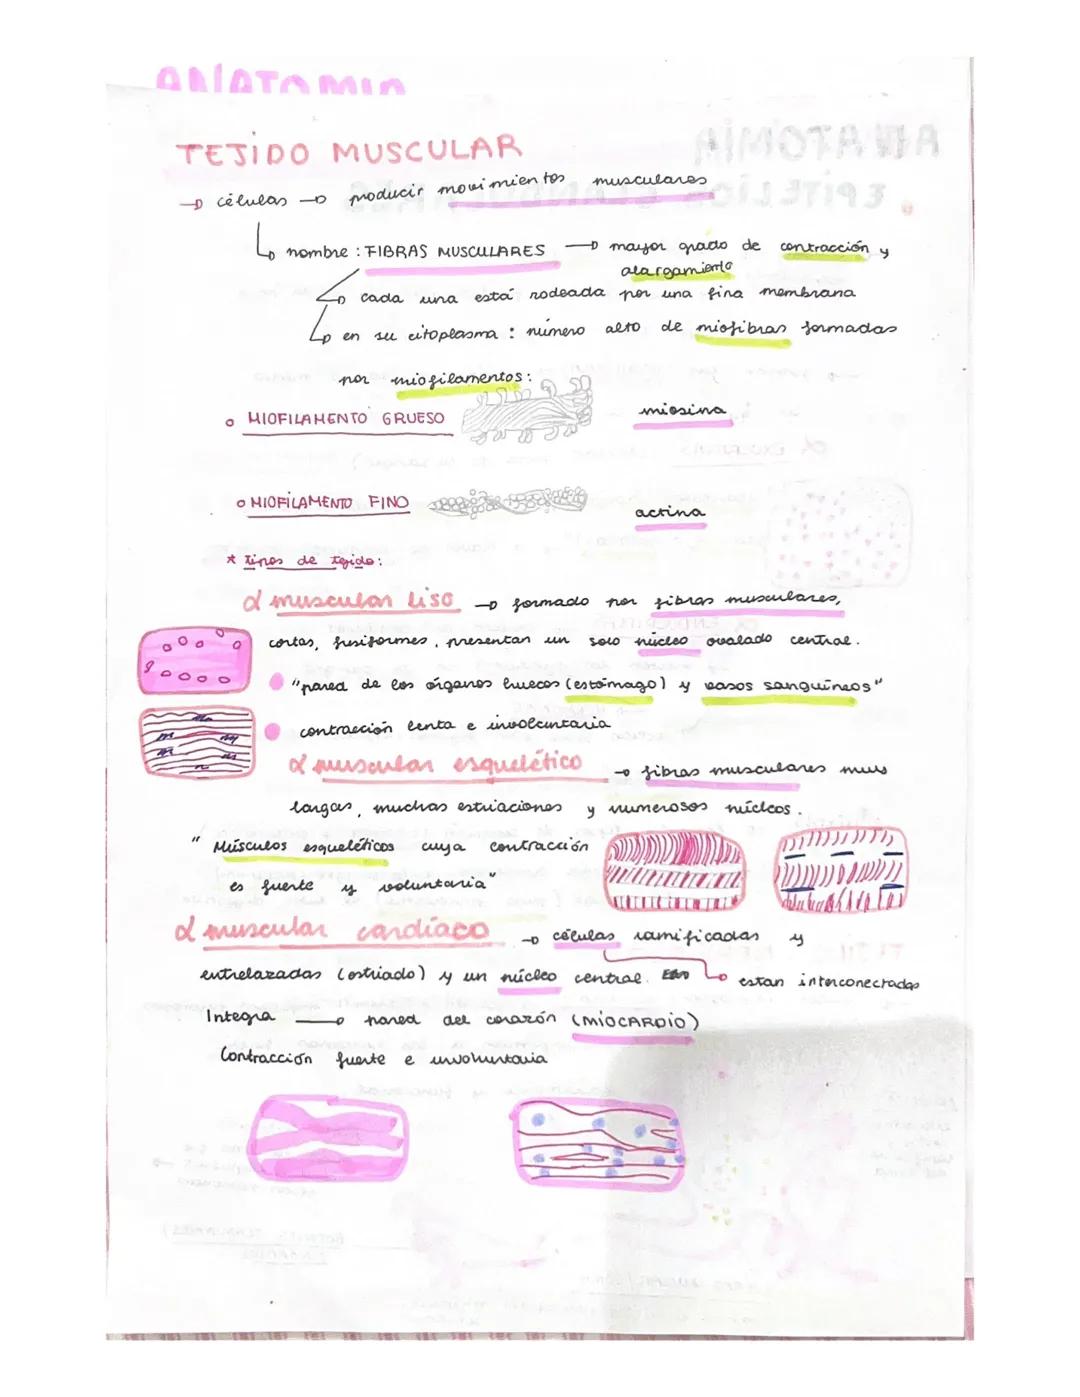 ANATOMIA
TEJIDO MUSCULAR
→ células → producir movimientos musculares
↳ nombre : FIBRAS MUSCULARES → mayor grado de contracción y
alargamiento
↳ cada una está rodeada por una fina membrana
↳ en su citoplasma : número alto de miofibras formadas
por miofilamentos:
o MIOFILAMENTO GRUESO miosina
o MIOFILAMENTO FINO actina
* tipos de tejido:
α muscular liso → formado por fibras musculares,
cortas, fusiformes, presentan un solo núcleo ovalado central.
"pared de los órganos huecos (estómago) y vasos sanguíneos"
contracción lenta e involuntaria
α muscular esquelético → fibras musculares muy
largas, muchas estriaciones y numerosos núcleos.
" Músculos esqueléticos cuya contracción
es fuerte y voluntaria"
α muscular cardíaco → células ramificadas y
entrelazadas (estriado) y un núcleo central. ↳ estan interconectadas
Integra → pared del corazón (MIOCARDIO)
Contracción fuerte e involuntaria